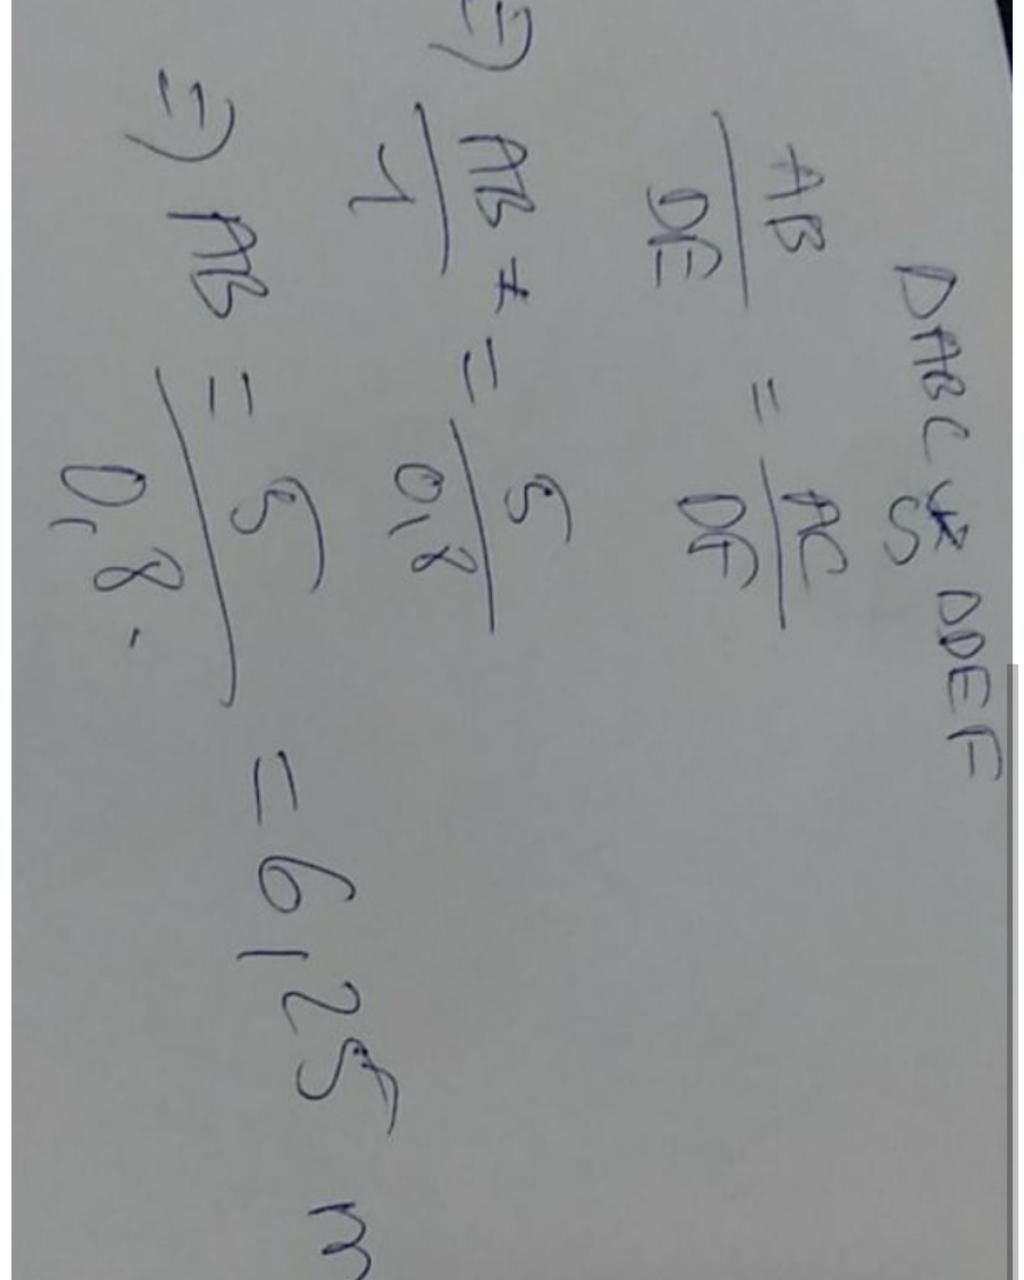 ΔABC ∽ ΔDEF
AB/DE = AC/DF
=) AB/1 = 5/0,8
=) AB = 5/0,8 = 6,25 m